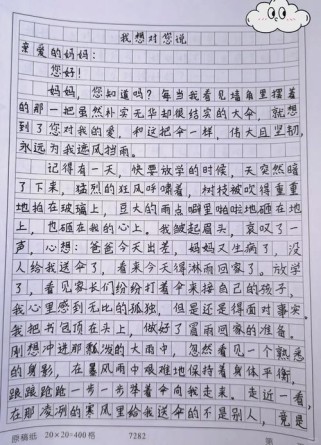 我想对您说
亲爱的妈妈：
您好！
妈妈，您知道吗？每当我看见墙角里摆着
的那一把虽然朴实无华却很结实的大伞，就想
到了您对我的爱，和这把伞一样，伟大且坚韧，
永远为我遮风挡雨。
记得有一天，快要放学的时候，天突然暗
了下来，猛烈的狂风呼啸着，树枝被吹得重重
地拍在玻璃上，豆大的雨点噼里啪啦地砸在地
上，也砸在我的心上。我皱起眉头，哀叹了一
声，心想：爸爸今天出差，妈妈又生病了，没
人给我送伞了，看来今天得淋雨回家了。放学
了，看见家长们纷纷打着伞来接自己的孩子，
我心里感到无比的孤独，但是还是得面对事实。
我把书包顶在头上，做好了冒雨回家的准备。
刚想冲进那瓢泼的大雨中，忽然看见一个熟悉
的身影，在暴风雨中艰难地保持着身体平衡，
踉踉跄跄一步一步举着伞向我走来。走近一看，
在那凌冽的寒风里给我送伞的不是别人，竟是
原稿纸 20×20=400格 7282 第